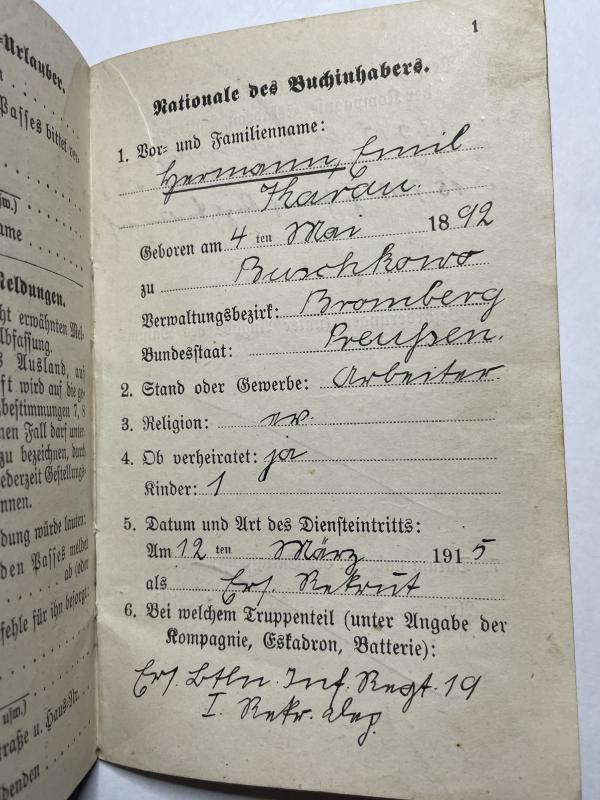 -Urlauber.
Passes bittet der
usw.)
ame
Meldungen.
ht erwähnten Mel-
bfassung.
s Ausland, auf
ft wird auf die ge-
zbestimmungen 7, 8
nen Fall darf unter-
zu bezeichnen, durch
ederzeit Gestellungs-
nnen.
dung würde lauten:
den Passes meldet
ab (oder
efehle für ihn besorgt:
usw.)
traße u. Haus-Nr.
ldenden
1
Nationale des Buchinhabers.
1. Vor- und Familienname:
Hermann, Emil
Tharau.
Geboren am 4 ten Mai 1892
zu Buschkowo
Verwaltungsbezirk: Bromberg
Bundesstaat: Preußen.
2. Stand oder Gewerbe: Arbeiter.
3. Religion: ev.
4. Ob verheiratet: ja
Kinder: 1
5. Datum und Art des Diensteintritts:
Am 12 ten März 1915
als Ers. Rekrut
6. Bei welchem Truppenteil (unter Angabe der
Kompagnie, Eskadron, Batterie):
Ers. Btln. Inf. Regt. 19
I. Rekr. Dep.